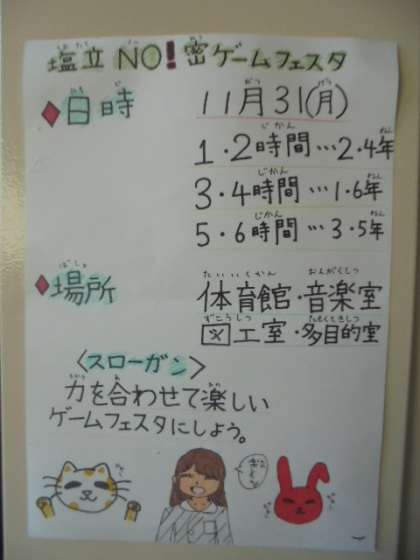 塩立NO!密ゲームフェスタ
◆日時
11月31(月)
1・2時間…2・4年
3・4時間…1・6年
5・6時間…3・5年
◆場所
体育館・音楽室
図工室・多目的室
〈スローガン〉
力を合わせて楽しい
ゲームフェスタにしよう。